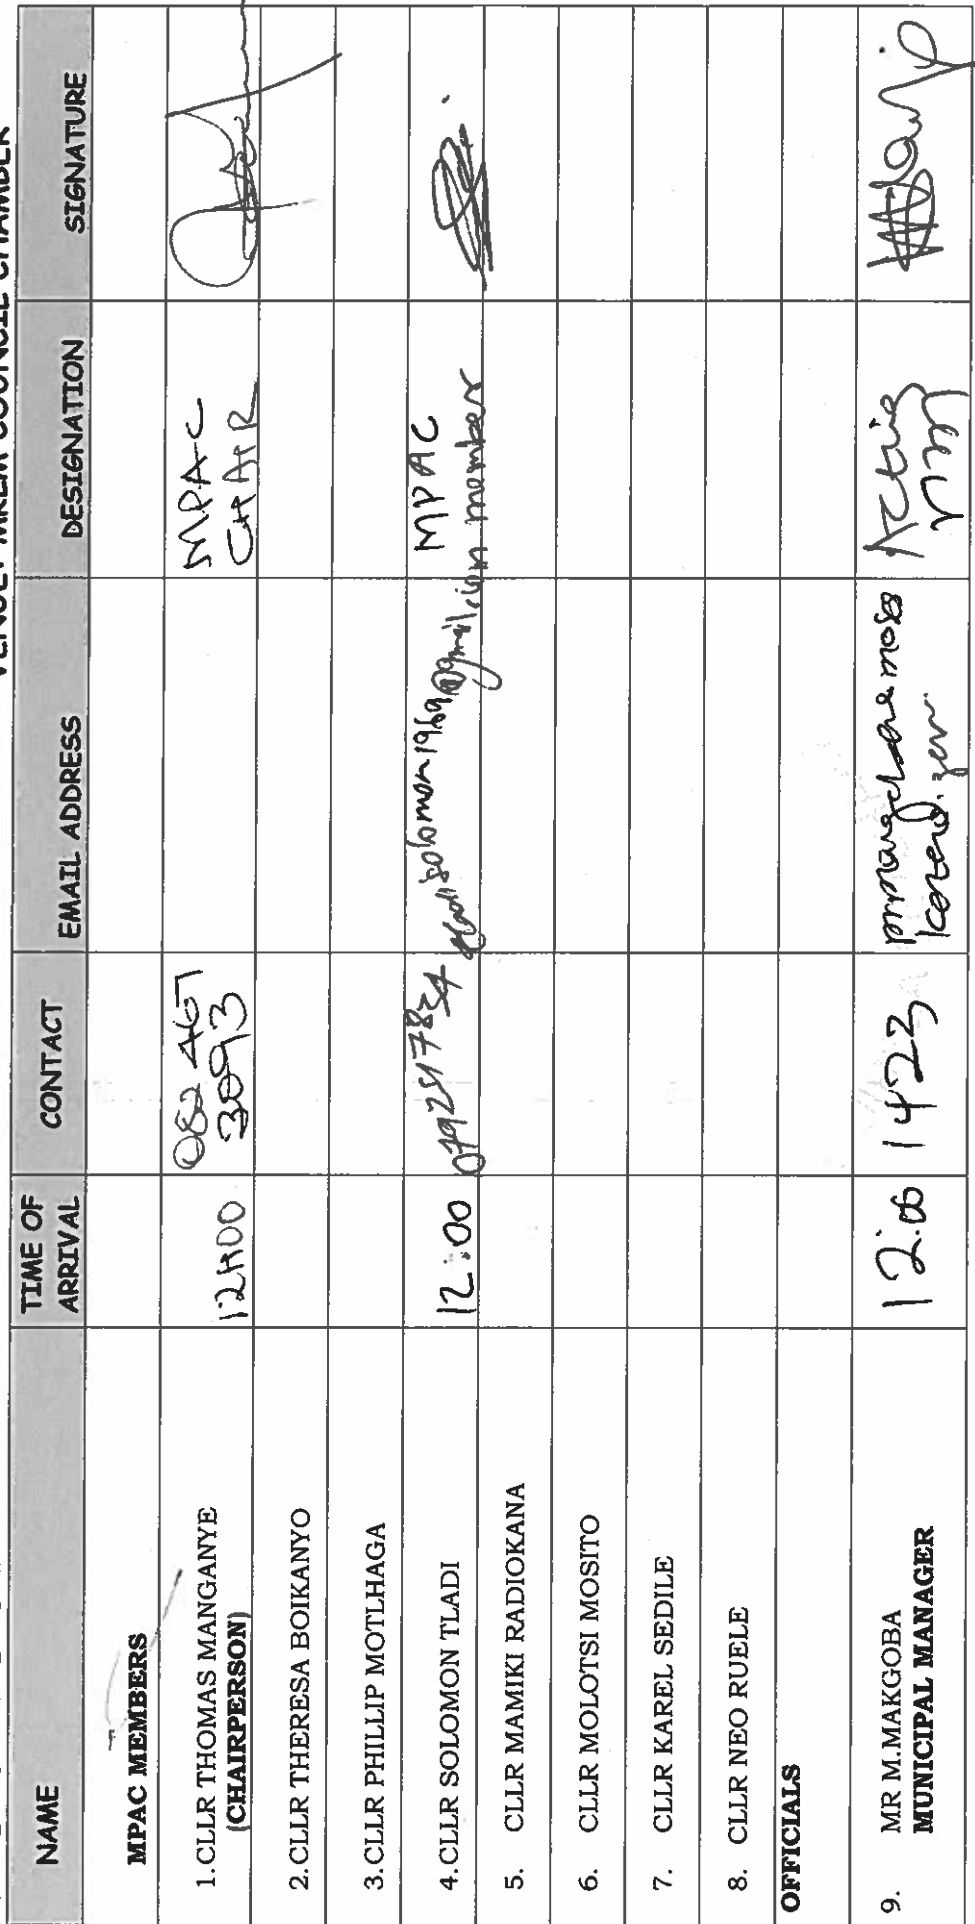 NAME
TIME OF
ARRIVAL
CONTACT
EMAIL ADDRESS
DESIGNATION
SIGNATURE
MPAC MEMBERS
1.CLLR THOMAS MANGANYE
(CHAIRPERSON)
12H00
082 467
3093
MPAC
CHAIR
2.CLLR THERESA BOIKANYO
3.CLLR PHILLIP MOTLHAGA
4.CLLR SOLOMON TLADI
12:00
solomon1969@gmail.com
MPAC
member
5. CLLR MAMIKI RADIOKANA
6. CLLR MOLOTSI MOSITO
7. CLLR KAREL SEDILE
8. CLLR NEO RUELE
OFFICIALS
9. MR M.MAKGOBA
MUNICIPAL MANAGER
12:00
1423
Acting
MM